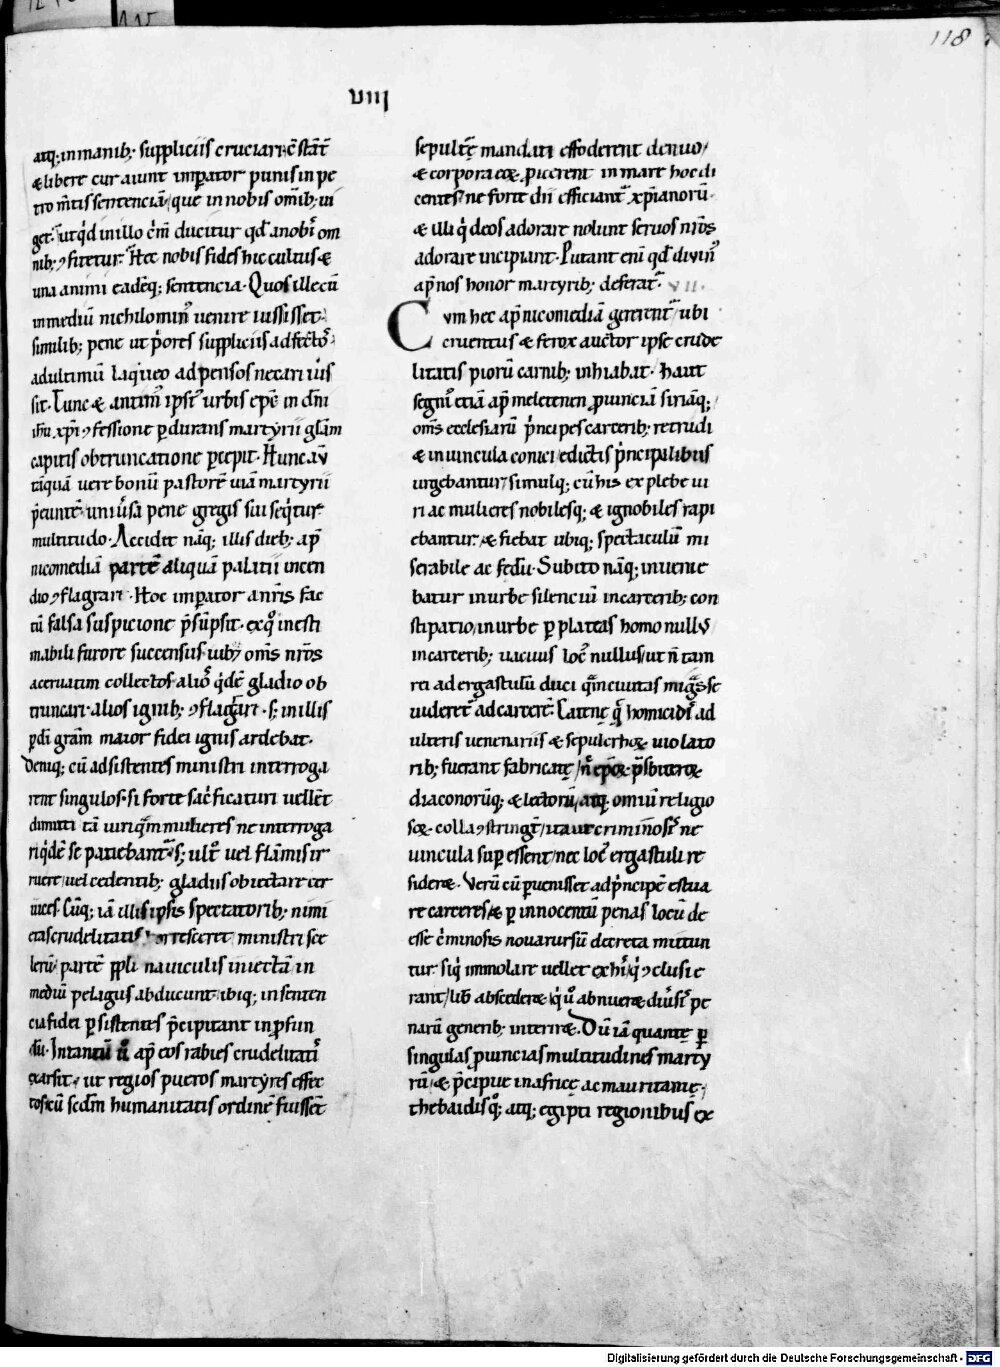 118
VIII
atq; inmanib; suppliciis cruciari c̄ stāt̄
& libere cur aiunt imꝑator punis in pe
tro m̄tis sentenciā, que in nobis om̄ib; ui
get. ut qͥd in illo c̄m̄ ducitur qd̄ anobͥ om
nib; ꝯfitetur. H̄ec nobis fides hic cultus &
una animi eadēq; sentencia. Quos ille cū
inmediū nichilomin᷒ uenire iussisset.
similib; pene ut pͥores suppliciis adfectos
adultimū laqueo adpensos necari ius
sit. Tunc & antim᷒ ipsi᷒ urbis ep̄c in dn̄i
ihū xp̄i ꝯfessione ꝑdurans martyrii glām
capitis obtruncatione ꝑcepit. Hunc aū
tāquā uere bonū pastorē uiā martyrii
p̄euntē uniūsa pene gregis sui seqͥtur
multitudo. Accidit nāq; illis dieb; ap̄
nicomediā partē aliquā palatii incen
dio ꝯflagrari. Hoc imꝑator anr̄is fac
tū falsa suspicione p̄sūpsit. exqͦ inesti
mabili furore succensus iub& om̄s nr̄os
aceruatim collectos alios qͥdē gladio ob
truncari. alios ignib; ꝯflagrari. s; in illis
ꝑ di grām maior fidei ignis ardebat.
Deniq; cū adsistentes ministri interroga
rent singulos. si forte sacͥficaturi uellēt
dimitti tā uiri qͣm mulieres ne interroga
ri qͥdē se patiebant᷒. s; ultͦ uel flāmis ir
ruere, uel cedentib; gladiis obiectare cer
uices. Cūq; iā illis ipsis spectatorib; nimi
etas crudelitatis horresceret ministri sce
lerū partē ppl̄i nauiculis inuectā in
mediū pelagus abducunt, ibiq; in senten
cia fidei ꝑsistentes p̄cipitant in ꝓfun
dū. Intantū ū ap̄ eos rabies crudelitati᷒
exarsit. ut regios pueros martyres effec
tos cū scdm̄ humanitatis ordinē fuissēt
sepultę mandati effoderent denuo,
& corpora eoꝝ ꝓicerent in mare hoc di
centes. ne forte dii efficiant᷒ xp̄ianorū.
& illi qͥ deos adorare nolunt seruos nr̄os
adorare incipiant. Putant eni qd̄ diuin᷒
ap̄ nos honor martyrib; deferat᷒. VII.
Cum hec ap̄ nicomediā gererent᷒, ubi
cruentus & ferox auctor ipse crude
litatis piorū carnib; inhiabat. haut
segni᷒ etiā ap̄ meletenen ꝓuinciā siriāq;
om̄s ecclesiarū pͥncipes carcerib; retrudi
& in uincula conici edictis pͥncipalibus
urgebantur, simulq; cū his ex plebe ui
ri ac mulieres nobilesq; & ignobiles rapi
ebantur. & fiebat ubiq; spectaculū mi
serabile ac fedū. Subito nāq; inuenie
batur in urbe silenciū in carcerib; con
stipatio, in urbe ꝑ plateas homo null᷒
in carcerib; uacuus loc᷒ nullus, ut n̄ tam
rei ad ergastulū duci qͣm ciuitas migͣsse
uideret᷒ ad carcerē. Catenę qͣ homicidis ad
ulteris ueneneariis & sepulcroꝝ uiolato
rib; fuerant fabricatę, nc̄ ep̄oꝝ p̄sbiteroꝝ
diaconorūq; & lectorū, atq; omniū religio
soꝝ colla ꝯstringūt, ita ut criminosis ne
uincula suꝑessent, nec loc᷒ ergastuli re
sideret. Verū cū ꝑuenisset ad pͥncipē estua
re carceres, & ꝑ innocentū penas locū de
esse cͥminosis noua rursū decreta mittun
tur. siqͥ immolare uellet ex his qͥ ꝯclusi e
rant, lib̄ abscederet, qͥ ū abnueret diūsis pe
narū generib; interiret. Dū iā quantę ꝑ
singulas ꝓuincias multitudines marty
rū, & p̄cipue in africę ac mauritanię,
thebaidisqͣ; atq; egipti regionibus ex
Digitalisierung gefördert durch die Deutsche Forschungsgemeinschaft - DFG